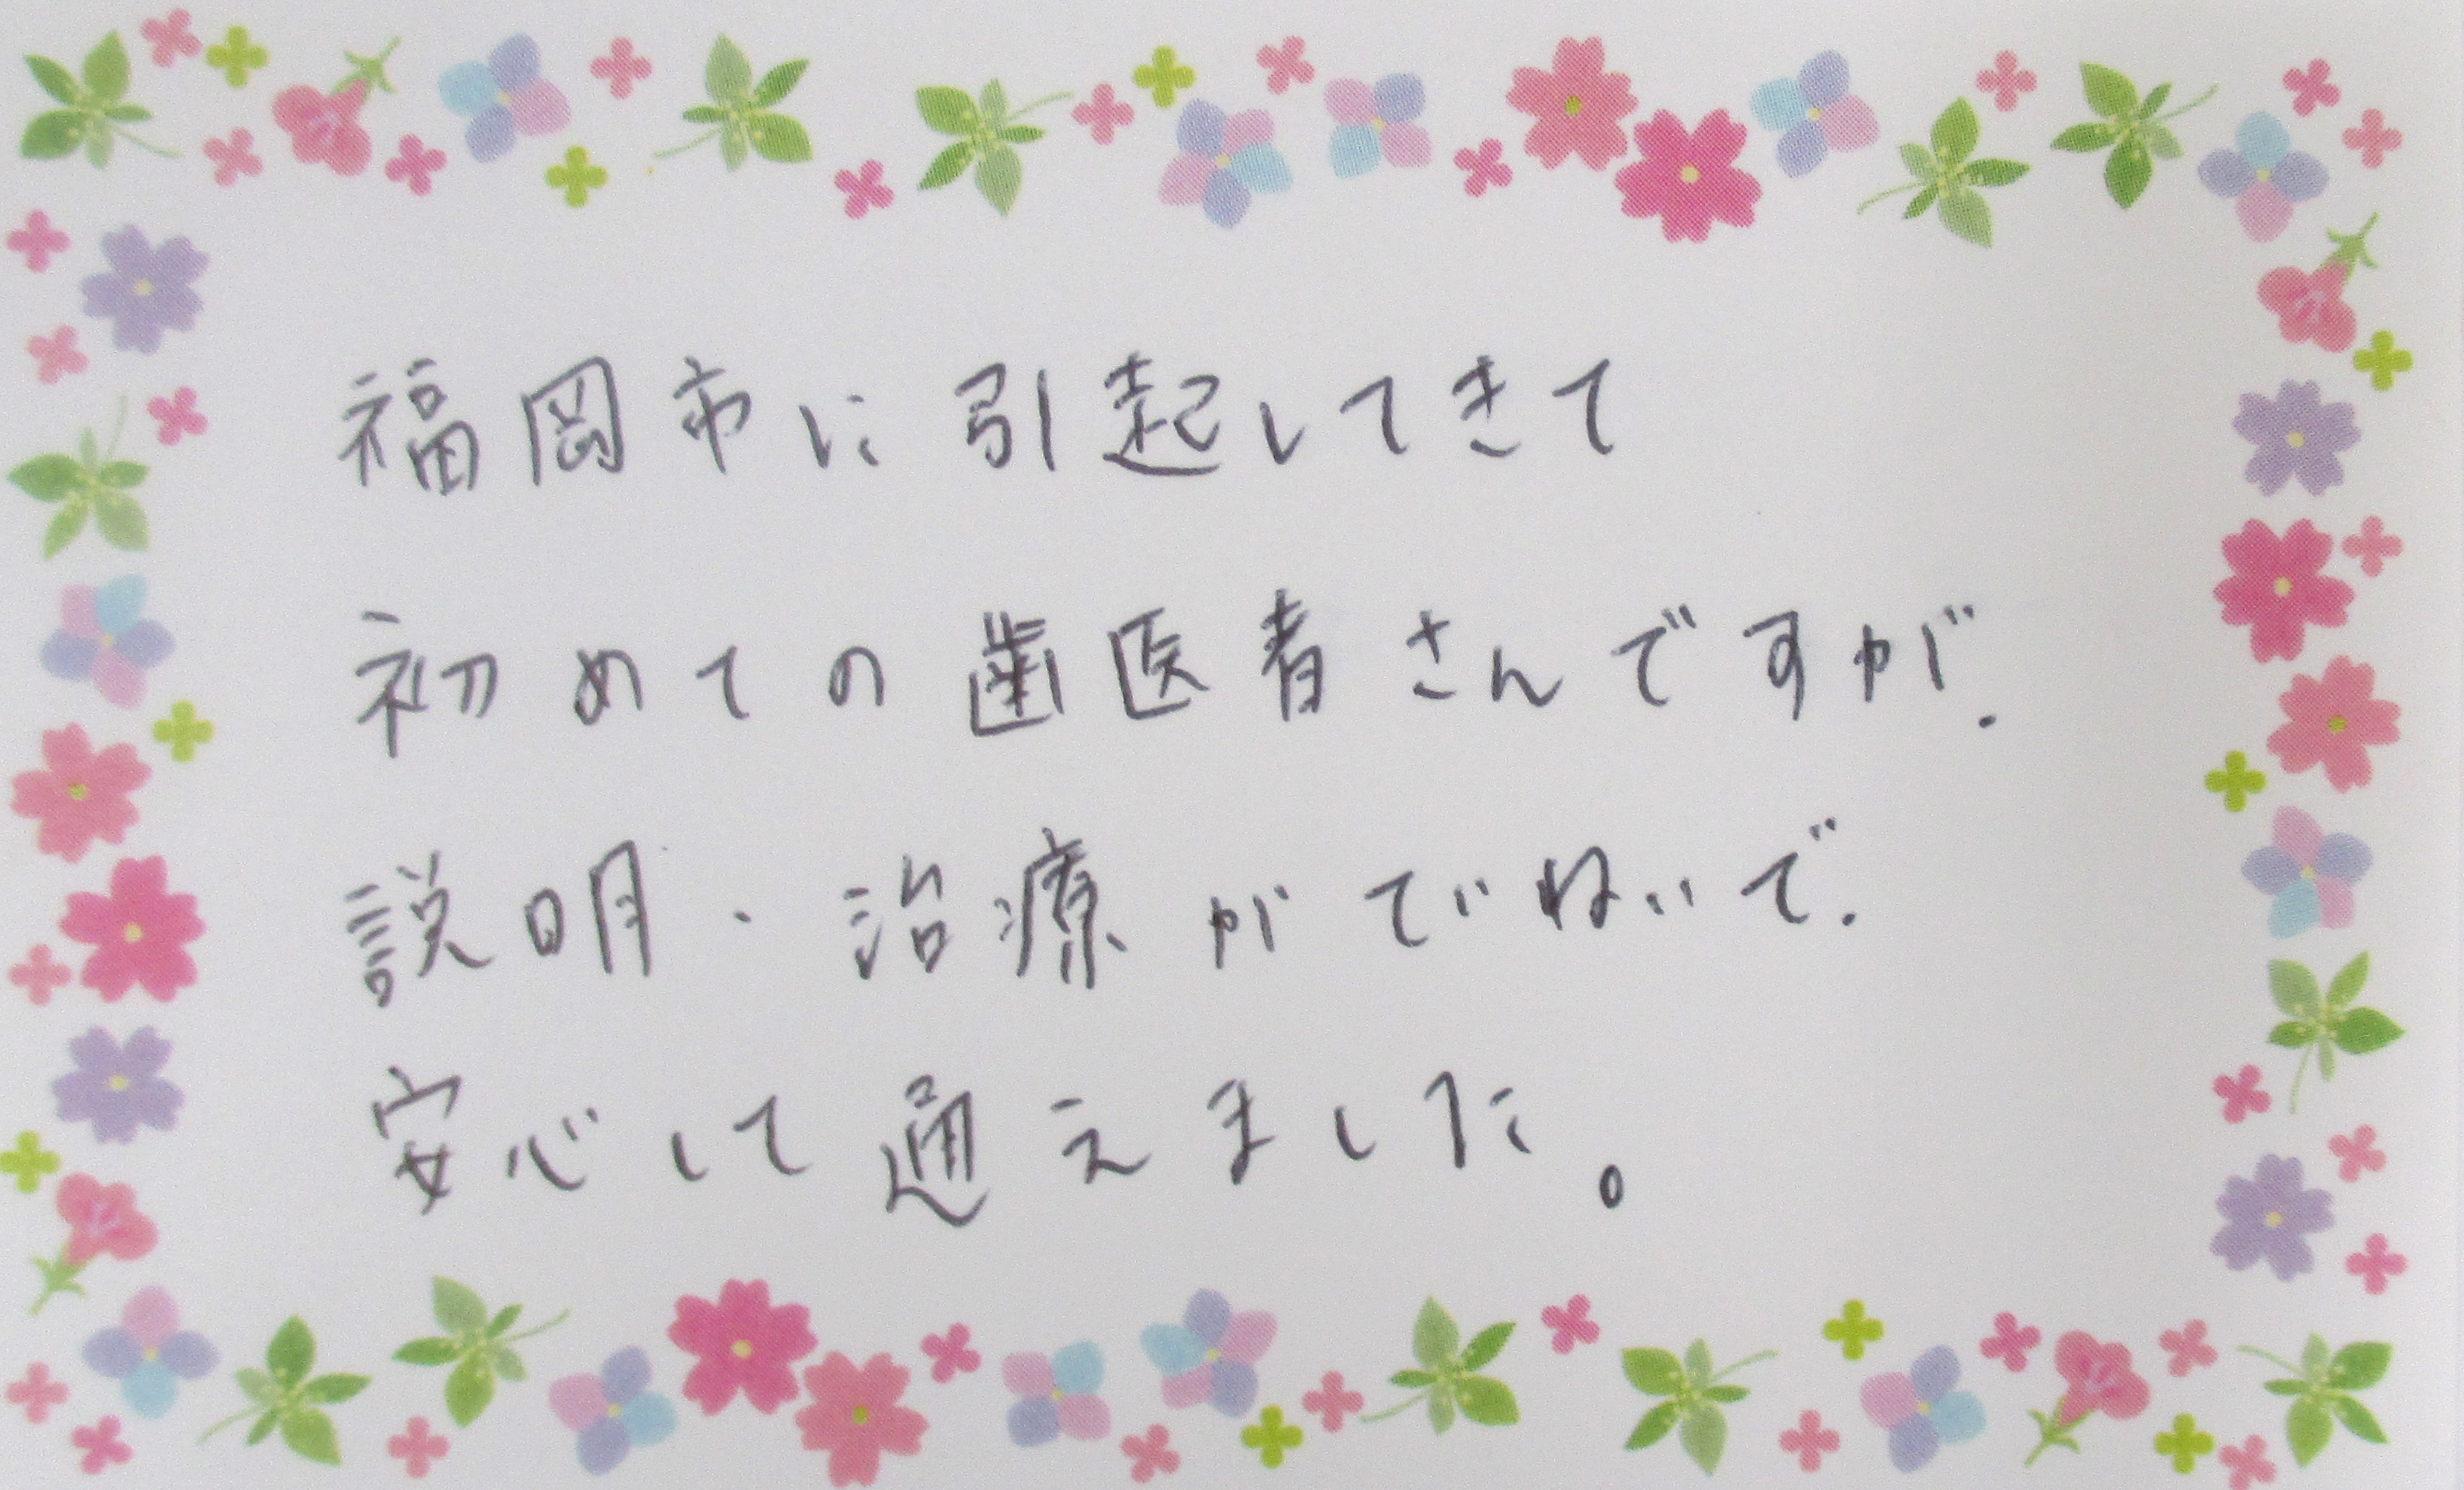 福岡市に引起してきて
初めての歯医者さんですが、
説明・治療がていねいで、
安心して通えました。